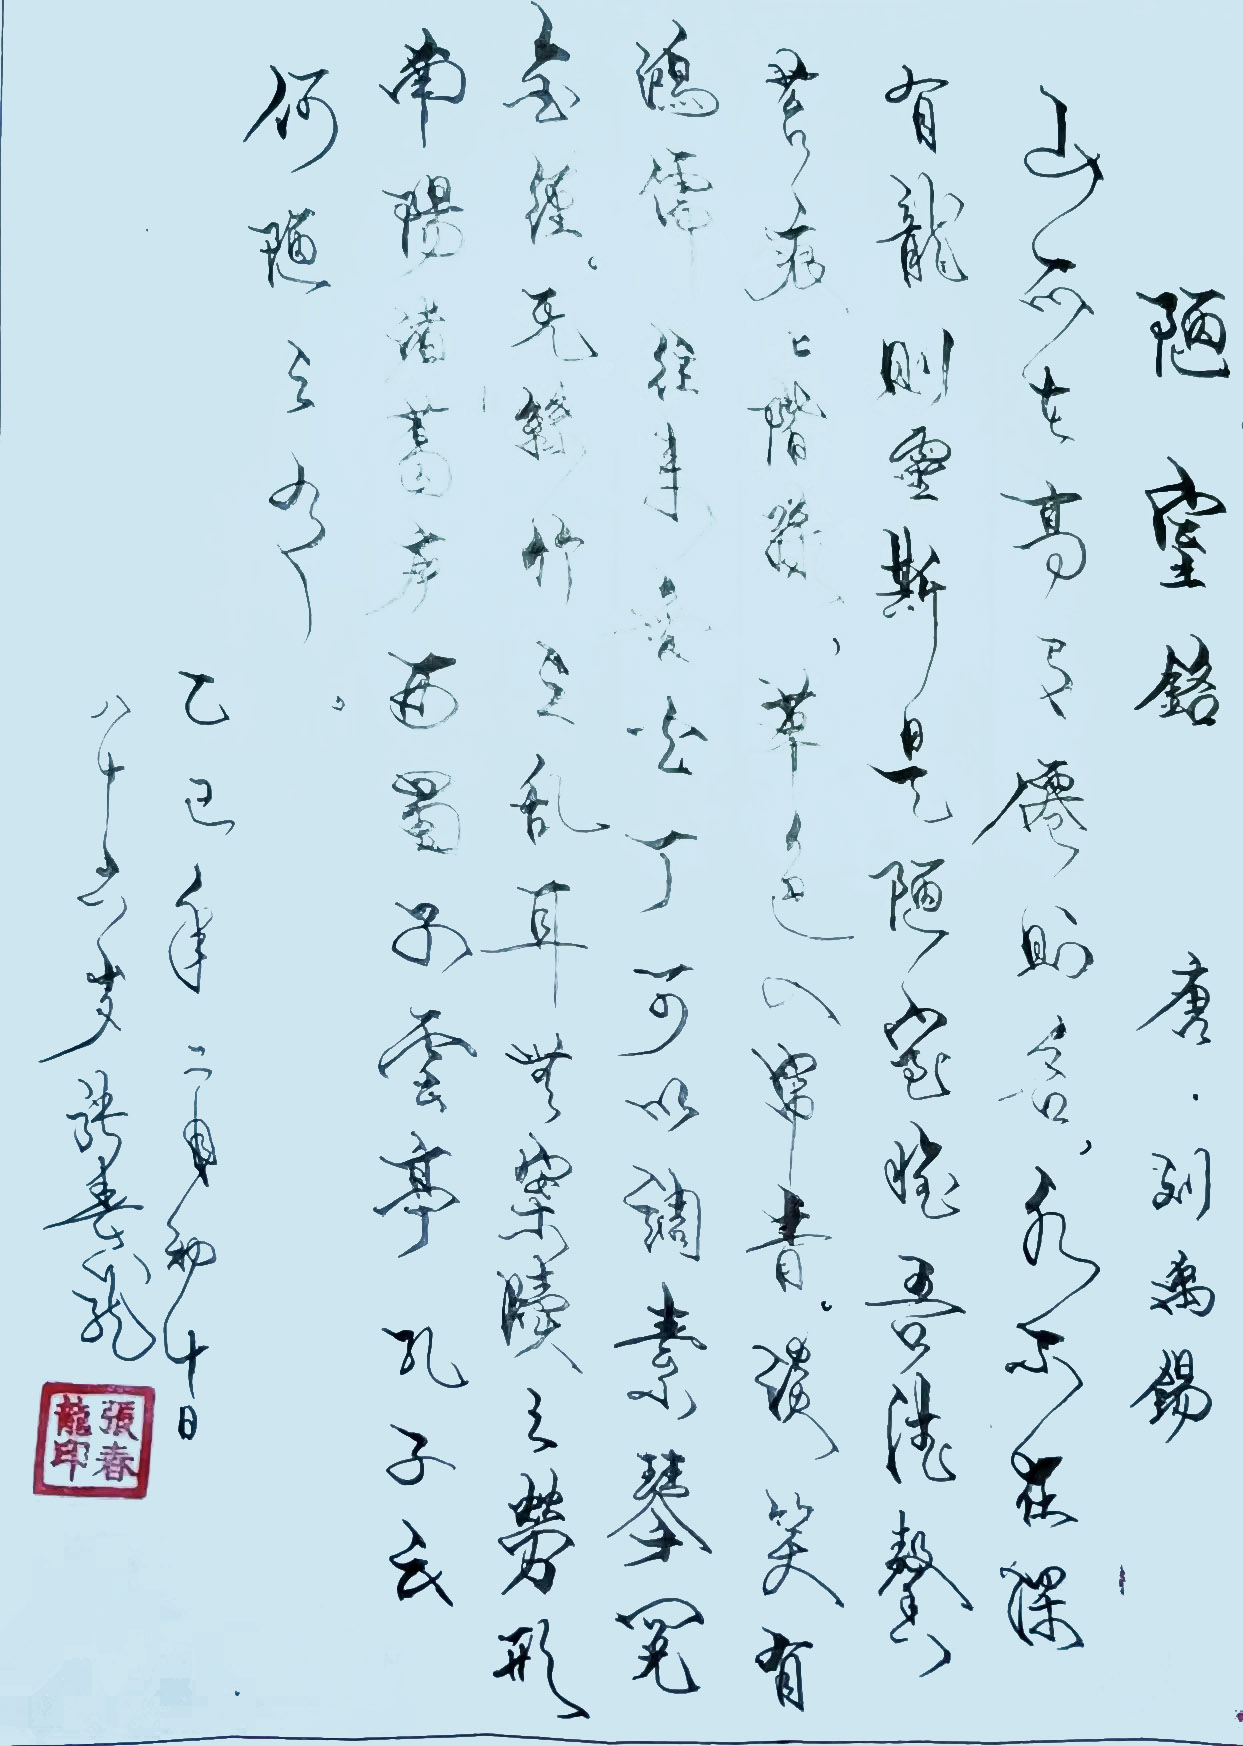 陋室銘 唐·刘禹錫
山不在高有僊則名、水不在深
有龍則靈斯是陋室惟吾德馨
苔痕上階綠、草色入簾青。談笑有
鴻儒往來無白丁可以調素琴閱
金經。无絲竹之乱耳無案牘之勞形
南陽諸葛庐西蜀子雲亭孔子云
何陋之有。
乙巳年二月初十日
八十六岁張春龍
張春龍印